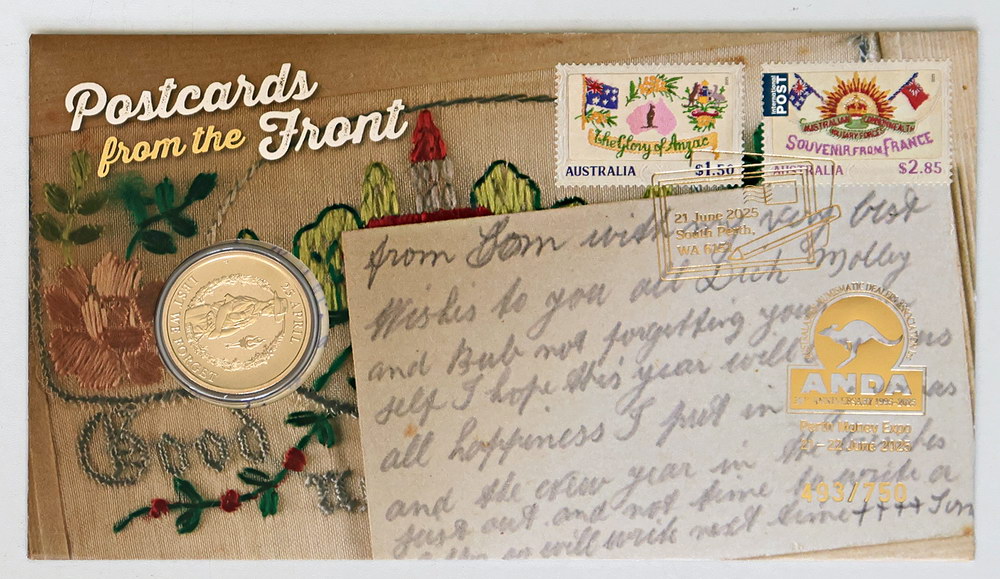 Postcards
from the Front
International
POST
The Glory of Anzac
AUSTRALIA $1.50
AUSTRALIAN COMMONWEALTH
MILITARY FORCES
SOUVENIR FROM FRANCE
AUSTRALIA $2.85
21 June 2025
South Perth,
WA 6151
LEST WE FORGET
25 APRIL
from Tom with very best
Wishes to you all Dick Molly
and Bub not forgetting your
self I hope this year will
all happiness I put in
and the New year in
just out and not time to write a
so will write next time ++++ Tom
Good
ANDA
ANNIVERSARY 1995-2025
Perth Money Expo
21 – 22 June 2025
493/750